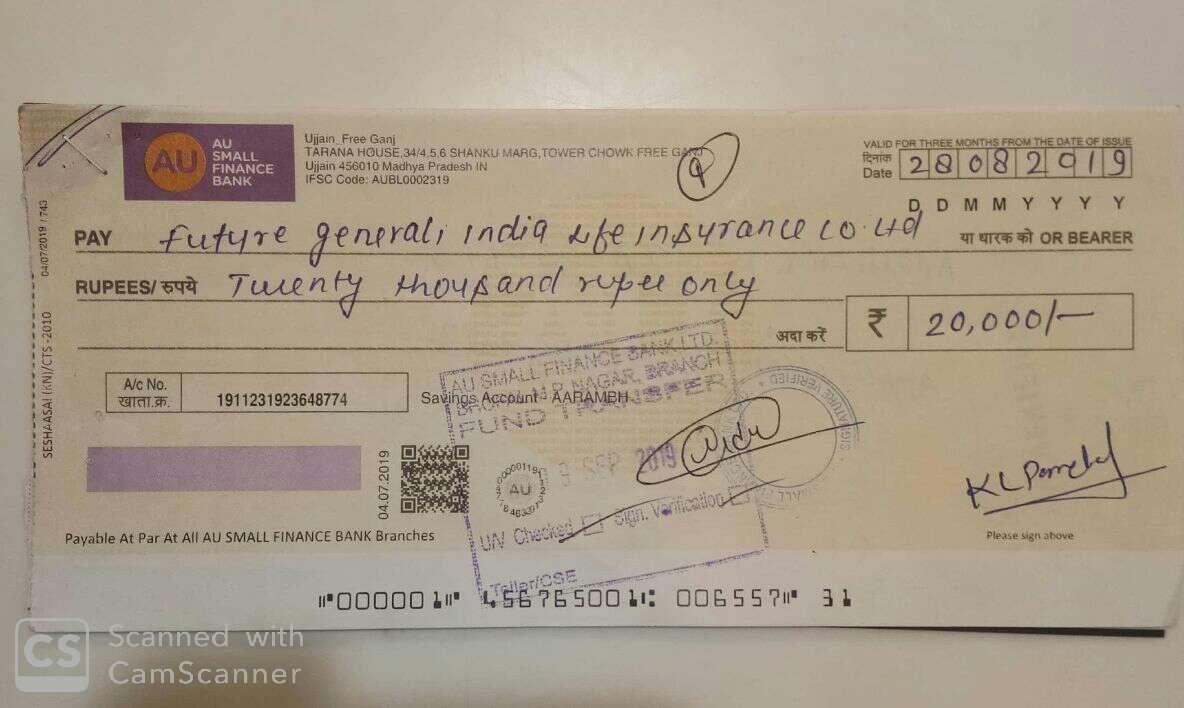 AU
AU
SMALL
FINANCE
BANK
Ujjain_Free Ganj
TARANA HOUSE,34/4,5,6 SHANKU MARG,TOWER CHOWK FREE GANJ
Ujjain 456010 Madhya Pradesh IN
IFSC Code: AUBL0002319
VALID FOR THREE MONTHS FROM THE DATE OF ISSUE
दिनांक
Date 28082019
D D M M Y Y Y Y
PAY Future generali india Life insurance co. Ltd या धारक को OR BEARER
RUPEES/ रुपये Twenty thousand rupee only
अदा करें ₹ 20,000/-
A/c No.
खाता.क्र. 1911231923648774
Savings Account - AARAMBH
AU SMALL FINANCE BANK LTD.
BHOPAL M.P. NAGAR, BRANCH
FUND TRANSFER
SEP 2019
AU
U/V Checked Sign. Verification
Teller/CSE
04.07.2019
04/07/2019 / 743
SESHAASAI (KN)/CTS-2010
Payable At Par At All AU SMALL FINANCE BANK Branches
Please sign above
⑈000001⑈ 456765001⑆ 006557⑈ 31
CS Scanned with
CamScanner